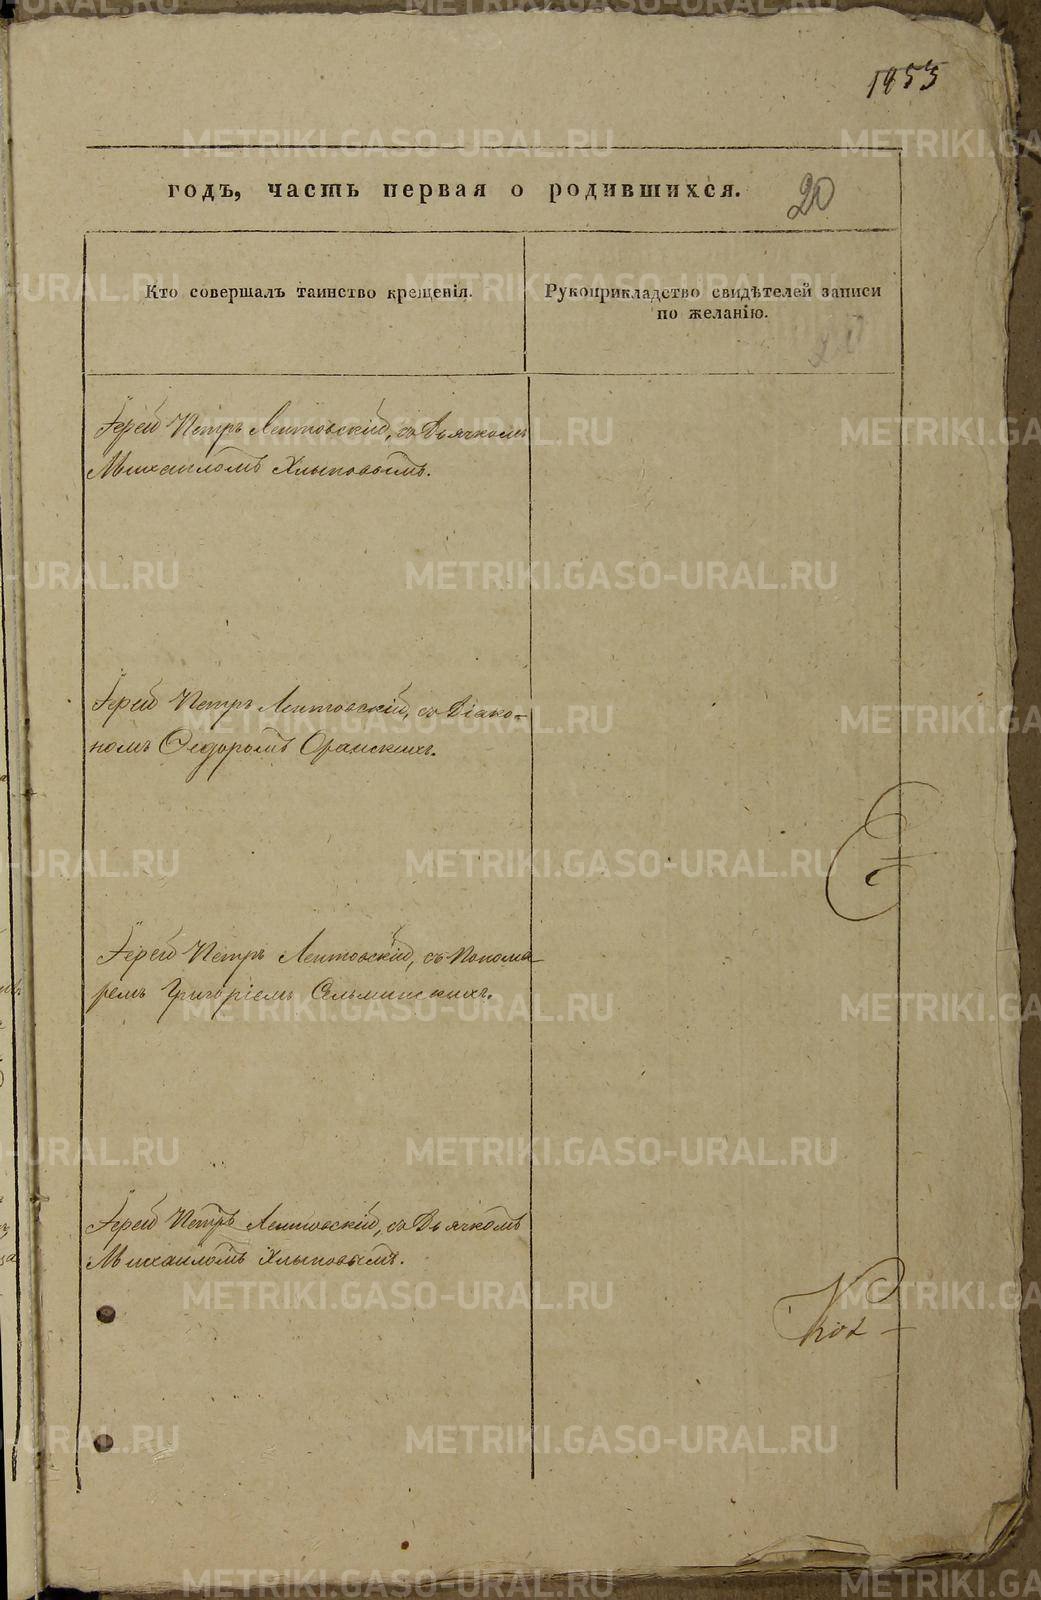 1853
годъ, часть первая о родившихся.
20
Кто совершалъ таинство крещенія.
Рукоприкладство свидѣтелей записи
по желанію.
20
Іерей Петръ Лептовскій, съ Дьячкомъ
Михаиломъ Хлыповымъ.
Іерей Петръ Лептовскій, съ Діако-
номъ Ѳедоромъ Оранскихъ.
Іерей Петръ Лептовскій, съ Понома-
ремъ Григоріемъ
Іерей Петръ Лептовскій, съ Дьячкомъ
Михаиломъ Хлыповымъ.
METRIKI.GASO-URAL.RU